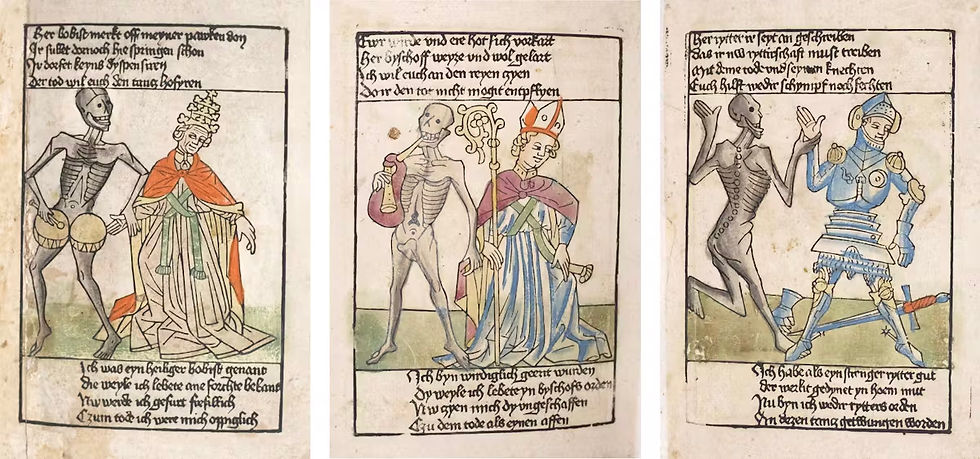 Her bobist merkt off meyner pawken don
Ir sullet dornoch hie springen schon
Ir dorfet keyns dyspensiren
Der tod wil euch den tantz hofyren
Ich was eyn heiliger bobist genant
die weyle ich lebete ane forchte bekant
Nw werde ich gefurt freßlich
Czum tode ich were mich
Ewr wirde vnd ere hot sich vorkart
Her byschoff weyze vnd wol gelart
Ich wil euch an den reyen czyen
Do ir den tot nicht mogit entpflyen
Ich byn wirdiglich geert wurden
Dy weyle ich lebete yn byschofs orden
Nw czyen mich dy vngeschaffen
Czu dem tode als eynen affen
Her rytter ir seyt an geschreiben
Das ir nw rytterschaft must treiben
Mit deme tode vnd seynen knechten
Euch hilft wedir schympf noch fechten
Ich habe als eyn strenger rytter gut
der werlit gedynet yn hoem mut
Nu byn ich wedir rytters orden
An dezen tantz getwungen worden